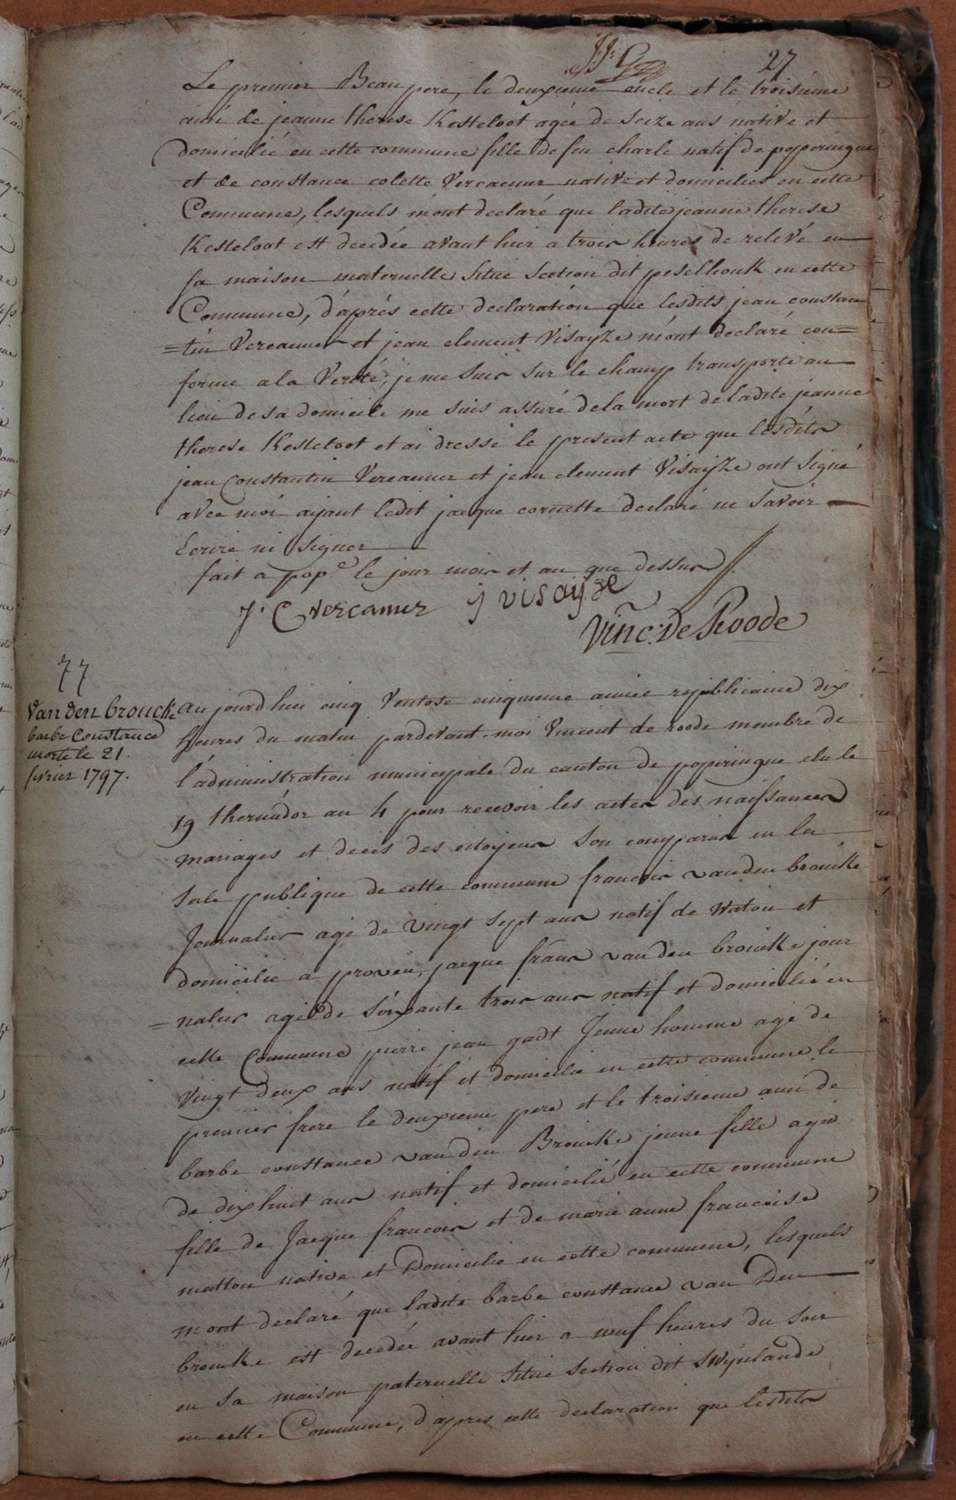 27
Le premier Beau pere, le deuxieme oncle et le troisième
ami de jeanne therese Kesteloot agée de seize ans native et
domiciliée en cette commune fille de feu charle natif de poperingue
et de constance colette Vercamer native et domiciliée en cette
Commune, lesquels m'ont declaré que ladite jeanne therese
Kesteloot est decedée avant hier a trois heures de relevé en
sa maison maternelle situé section dit peselhouk en cette
Commune, d'après cette declaration que lesdits jean constan
=tin Vercamer et jean clement Visayze m'ont declaré con=
forme a la Verité, je me suis sur le champ transporté au
lieu de sa domicile me suis assuré de la mort de ladite jeanne
therese Kesteloot et ai dressé le present acte que lesdits
jean Constantin Vercamer et jean clement Visayze ont signé
avec moi ayant ledit jacque cornette declaré ne savoir
Ecrire ni signer
fait a pop.e le jour mois et an que dessus
j. C vercamer j visayze
Vinc. De Roode
77
Van den brouck
barbe Constance
morte le 21.
fevrier 1797.
aujourd'hui cinq Ventose cinquieme année republicaine dix
heures du matin pardevant moi Vincent de roode membre de
l'administration municipale du canton de poperingue elu le
19 thermidor an 4 pour recevoir les actes des naissances
mariages et decès des citoyens son comparus en la
sale publique de cette commune francois vanden brouckke
Journalier agé de vingt sept ans natif de Watou et
domicilié a proven, jacque frans vanden brouckke jour
=nalier agé de soixante trois ans natif et domicilié en
cette Commune pierre jean gadt Jeune homme agé de
vingt deux ans natif et domicilié en cette commune le
premier frere le deuxieme pere et le troisieme ami de
barbe constance vanden Brouckke jeune fille agée
de dixhuit ans natif et domicilié en cette commune
fille de Jacque francois et de marie anne francoise
matton native et Domicilie en cette commune, lesquels
m'ont declaré que ladite barbe constance van Den
brouckke est decedée avant hier a neuf heures du soir
en sa maison paternelle situé section dit Swynlande
en cette Commune, d'apres cette declaration que lesdits